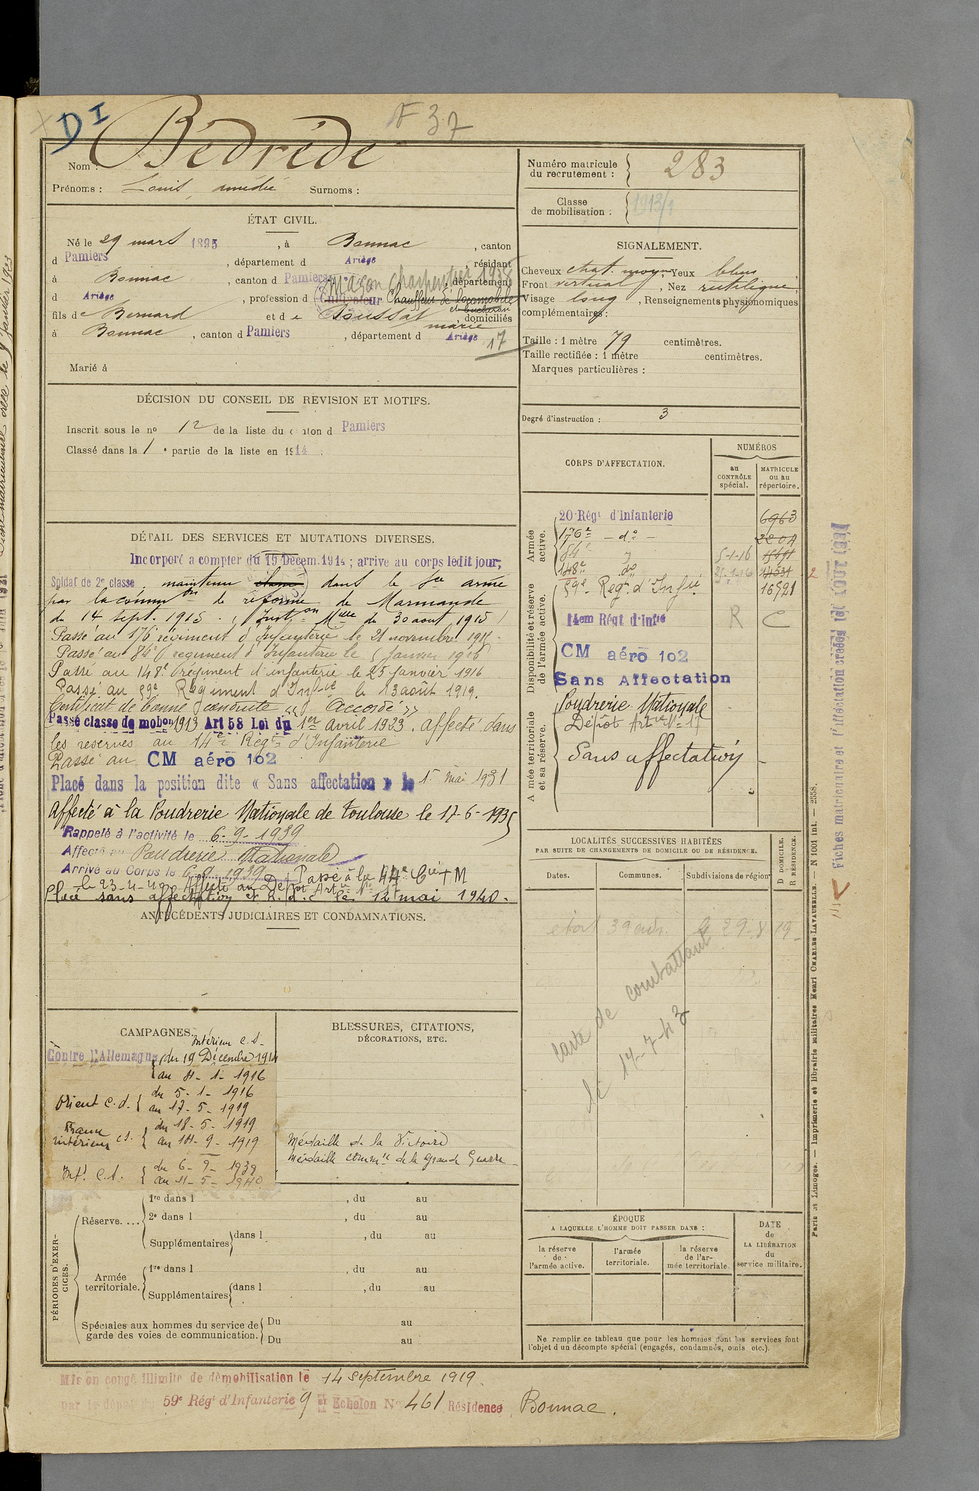 DI
F 37
Nom : Bédrède
Prénoms : Louis, amédée Surnoms :
ÉTAT CIVIL.
Né le 29 mars 1895, à Bonnac, canton
d Pamiers, département d Ariège, résidant
à Bonnac, canton d Pamiers, département
Maçon Charpentier 1938
d Ariège, profession de Cultivateur Chauffeur de locomobile
fils de Bernard et de Soussat marie, domiciliés
à Bonnac, canton d Pamiers, département d Ariège
17
Marié à
DÉCISION DU CONSEIL DE REVISION ET MOTIFS.
Inscrit sous le no 12 de la liste du canton d Pamiers
Classé dans la 1e partie de la liste en 1914.
DÉTAIL DES SERVICES ET MUTATIONS DIVERSES.
Incorporé a compter du 19 Décem. 1914; arrive au corps ledit jour;
Soldat de 2e classe. maintenu dans le Sce armé
par la common de réforme de Marmande
du 14 Sept. 1915. (Inston Mlle du 30 aout 1915)
Passé au 176 régiment d'Infanterie le 21 novembre 1915.
Passé au 84e régiment d'Infanterie le 5 Janvier 1916
Passé au 148e régiment d'infanterie le 25 janvier 1916
Passé au 59e Régiment d'Infie le 13 août 1919.
Certificat de bonne conduite « Accordé »
Passé classe de mobon 1913 Art 58 Loi du 1er avril 1923. Affecté dans
les réserves au 14e Régt d'Infanterie
Passé au CM aéro 102
Placé dans la position dite « Sans affectation » le 1er mai 1931
Affecté à la Poudrerie Nationale de Toulouse le 17-6-1935
Rappelé à l'activité le 6-9-1939
Affecté au Poudrerie Nationale
Arrivé au Corps le 6-9-1939. Passé à la 44e Cie + M
le 23-4-40. Affecté au Dépôt Artie No 17
Placé sans affectation le 12 mai 1940.
ANTÉCÉDENTS JUDICIAIRES ET CONDAMNATIONS.
CAMPAGNES.
Contre l'Allemagne
Intérieur C.S. du 19 Décembre 1914
au 4-1-1916
Orient C.d. du 5-1-1916
au 17-5-1919
France intérieur C.S. du 18-5-1919
au 14-9-1919
Intr C.S. du 6-9-1939
au 11-5-1940
BLESSURES, CITATIONS,
DÉCORATIONS, ETC.
Médaille de la Victoire
Médaille commve de la Grande Guerre
PÉRIODES D'EXERCICES.
Réserve....
1re dans l , du au
2e dans l , du au
Supplémentaires dans l , du au
Armée territoriale.
1re dans l , du au
Supplémentaires dans l , du au
Spéciales aux hommes du service de garde des voies de communication.
Du au
Du au
Mis en congé illimité de démobilisation le 14 septembre 1919.
par le dépôt du 59e Régt d'Infanterie 9 Echelon No 461 Résidence Bonnac.
Numéro matricule du recrutement : 283
Classe de mobilisation : 1913/1
SIGNALEMENT.
Cheveux chat. moy. Yeux bleus
Front vertical, Nez rectiligne,
Visage long, Renseignements physionomiques
complémentaires :
Taille : 1 mètre 79 centimètres.
Taille rectifiée : 1 mètre centimètres.
Marques particulières :
Degré d'instruction : 3
CORPS D'AFFECTATION.
NUMÉROS
au CONTRÔLE spécial.
MATRICULE OU AU répertoire.
Armée active.
20 Régt d'Infanterie 6963
176e — do —
84e 5-1-16
148e do
59e Régt d'Infie 16521
Disponibilité et réserve de l'armée active.
14em Régt d'infie R C
CM aéro 102
Sans Affectation
Poudrerie Nationale
Dépôt Artie No 17
Armée territoriale et sa réserve.
Sans affectation
LOCALITÉS SUCCESSIVES HABITÉES
PAR SUITE DE CHANGEMENTS DE DOMICILE OU DE RÉSIDENCE.
Dates.
Communes.
Subdivisions de région
D DOMICILE.
R RÉSIDENCE.
carte de combattant
le 17-7-43
ÉPOQUE
A LAQUELLE L'HOMME DOIT PASSER DANS :
la réserve de l'armée active.
l'armée territoriale.
la réserve de l'armée territoriale
DATE de LA LIBÉRATION du service militaire.
Ne remplir ce tableau que pour les hommes dont les services font
l'objet d'un décompte spécial (engagés, condamnés, omis etc.).
Paris et Limoges. — Imprimerie et librairie militaires Henri CHARLES-LAVAUZELLE. — N 1001 int. — 2558.